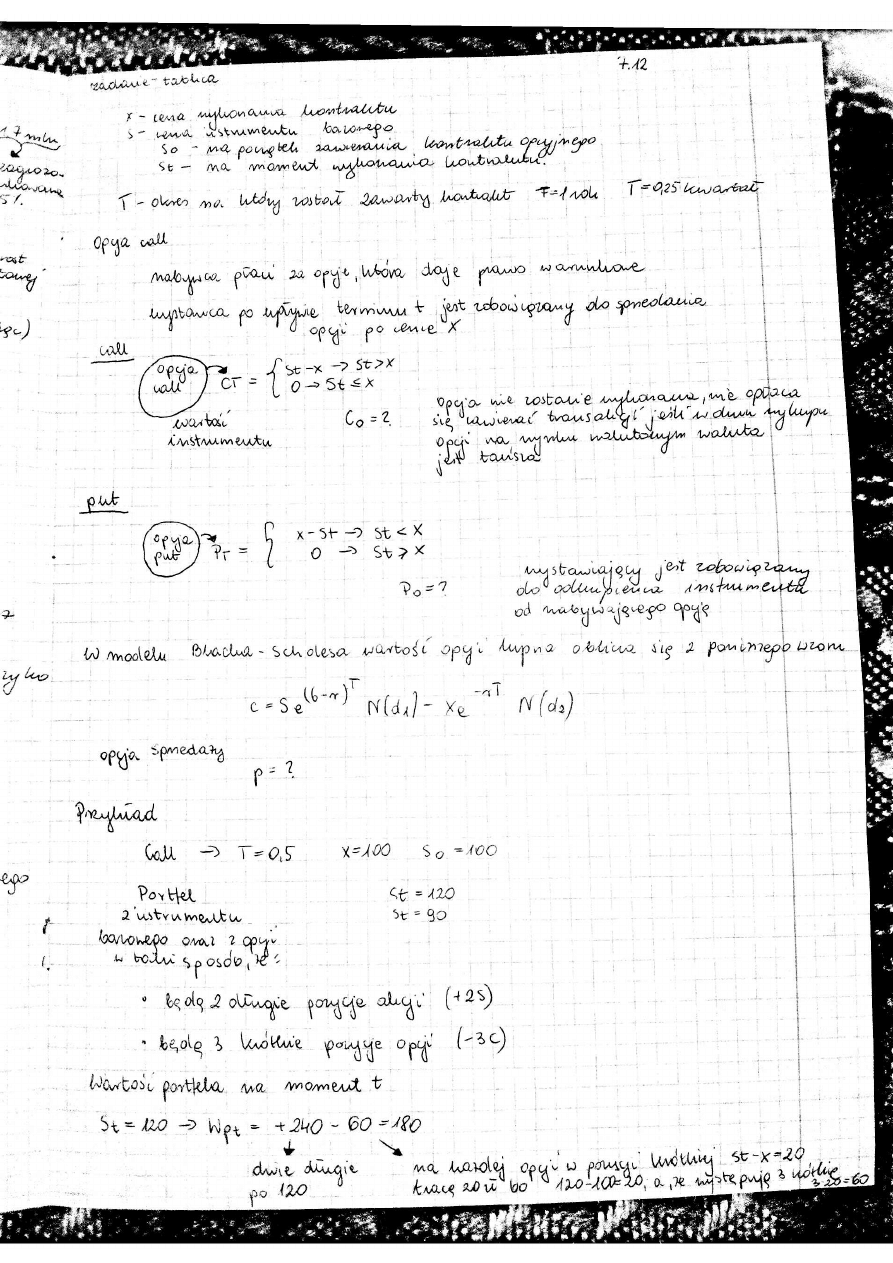 7.12
zadanie - tablica
x - cena wykonania kontraktu
s - cena instrumentu bazowego
So - na początek zawierania kontraktu opcyjnego
St - na moment wykonania kontraktu.
T - okres na który został zawarty kontrakt T=1 rok T=0,25 kwartał
Opcja call
nabywca płaci za opcje, która daje prawo warunkowe
wystawca po upływie terminu t jest zobowiązany do sprzedania
opcji po cenie X
call
opcja call CT = { St-x → St>x
0 → St ≤ x
wartość instrumentu
C0 = ?
opcja nie zostanie wykonana, nie opłaca
się zawierać transakcji jeśli w dniu wykupu
opcji na rynku walutowym waluta
jest tańsza
put
opcja put PT = { x-St → St < X
0 → St ⩾ X
P0 = ?
wystawiający jest zobowiązany
do odkupienia instrumentu
od nabywającego opcję
W modelu Blacka - Scholesa wartość opcji kupna oblicza się z poniższego wzoru
c = Se^(b-r)T N(d1) - Xe^-rT N(d2)
opcja sprzedaży
p = ?
Przykład
Call → T=0,5 X=100 S0=100
Portfel
z instrumentu
bazowego oraz z opcji
w taki sposób, że:
St = 120
St = 90
• będą 2 długie pozycje akcji (+2S)
• będą 3 krótkie pozycje opcji (-3C)
Wartość portfela na moment t
St = 120 → Wpt = +240 - 60 = 180
dwie długie
po 120
na każdej opcji w pozycji krótkiej St-x=20
tracę 20 zł bo 120-100=20, a, że występują 3 krótkie
3·20=60
17 mln
5%.